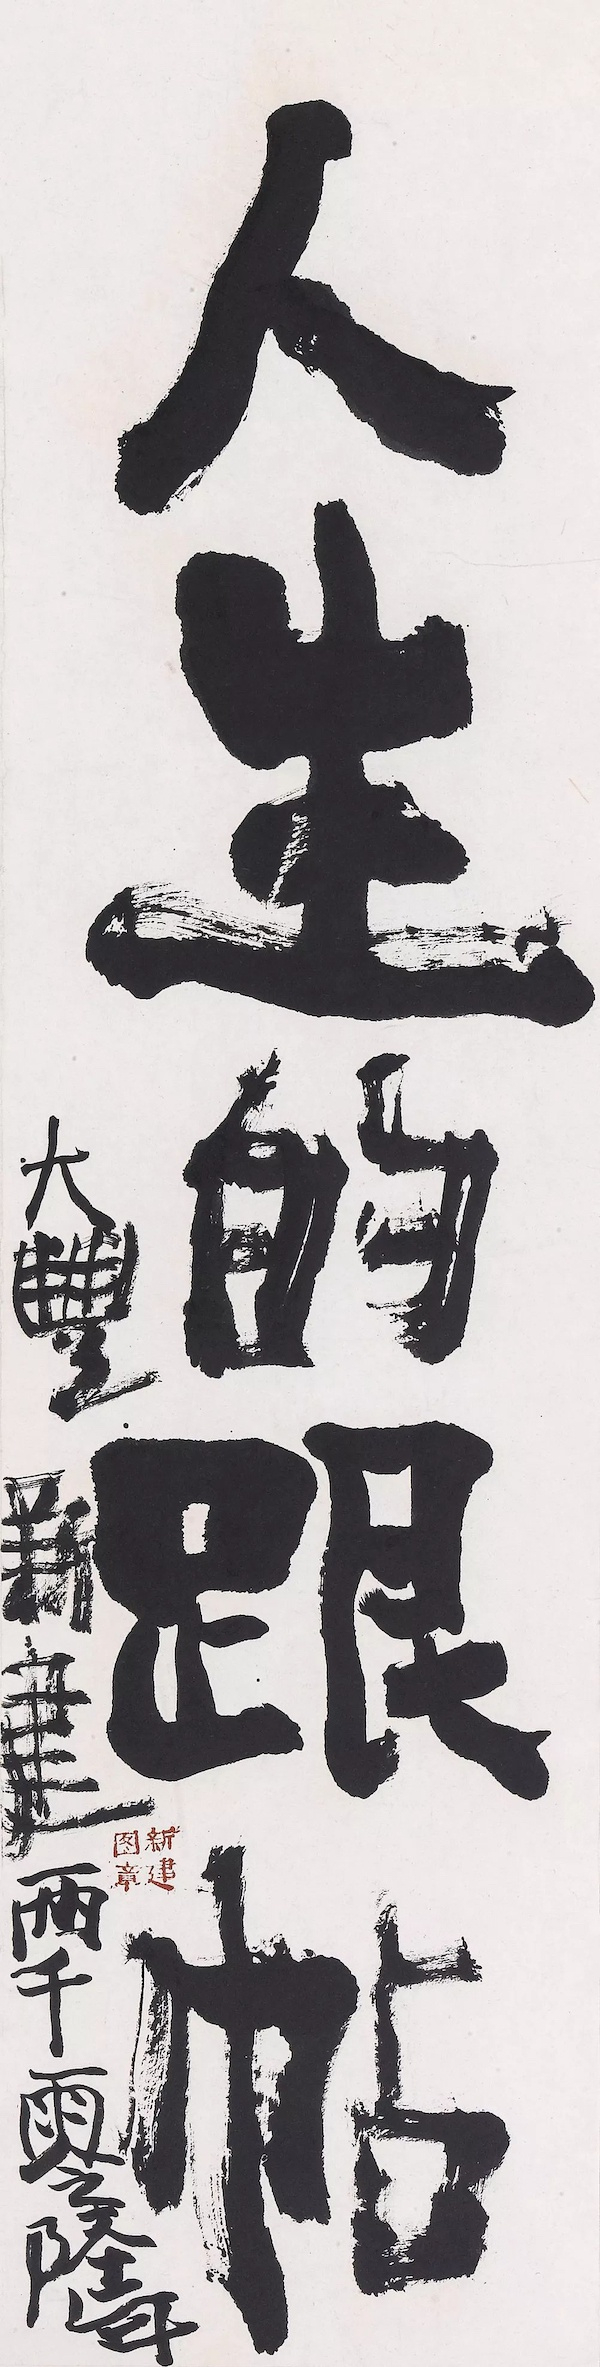 人生的跟帖
大豐新建两千零陸年
新建
图章